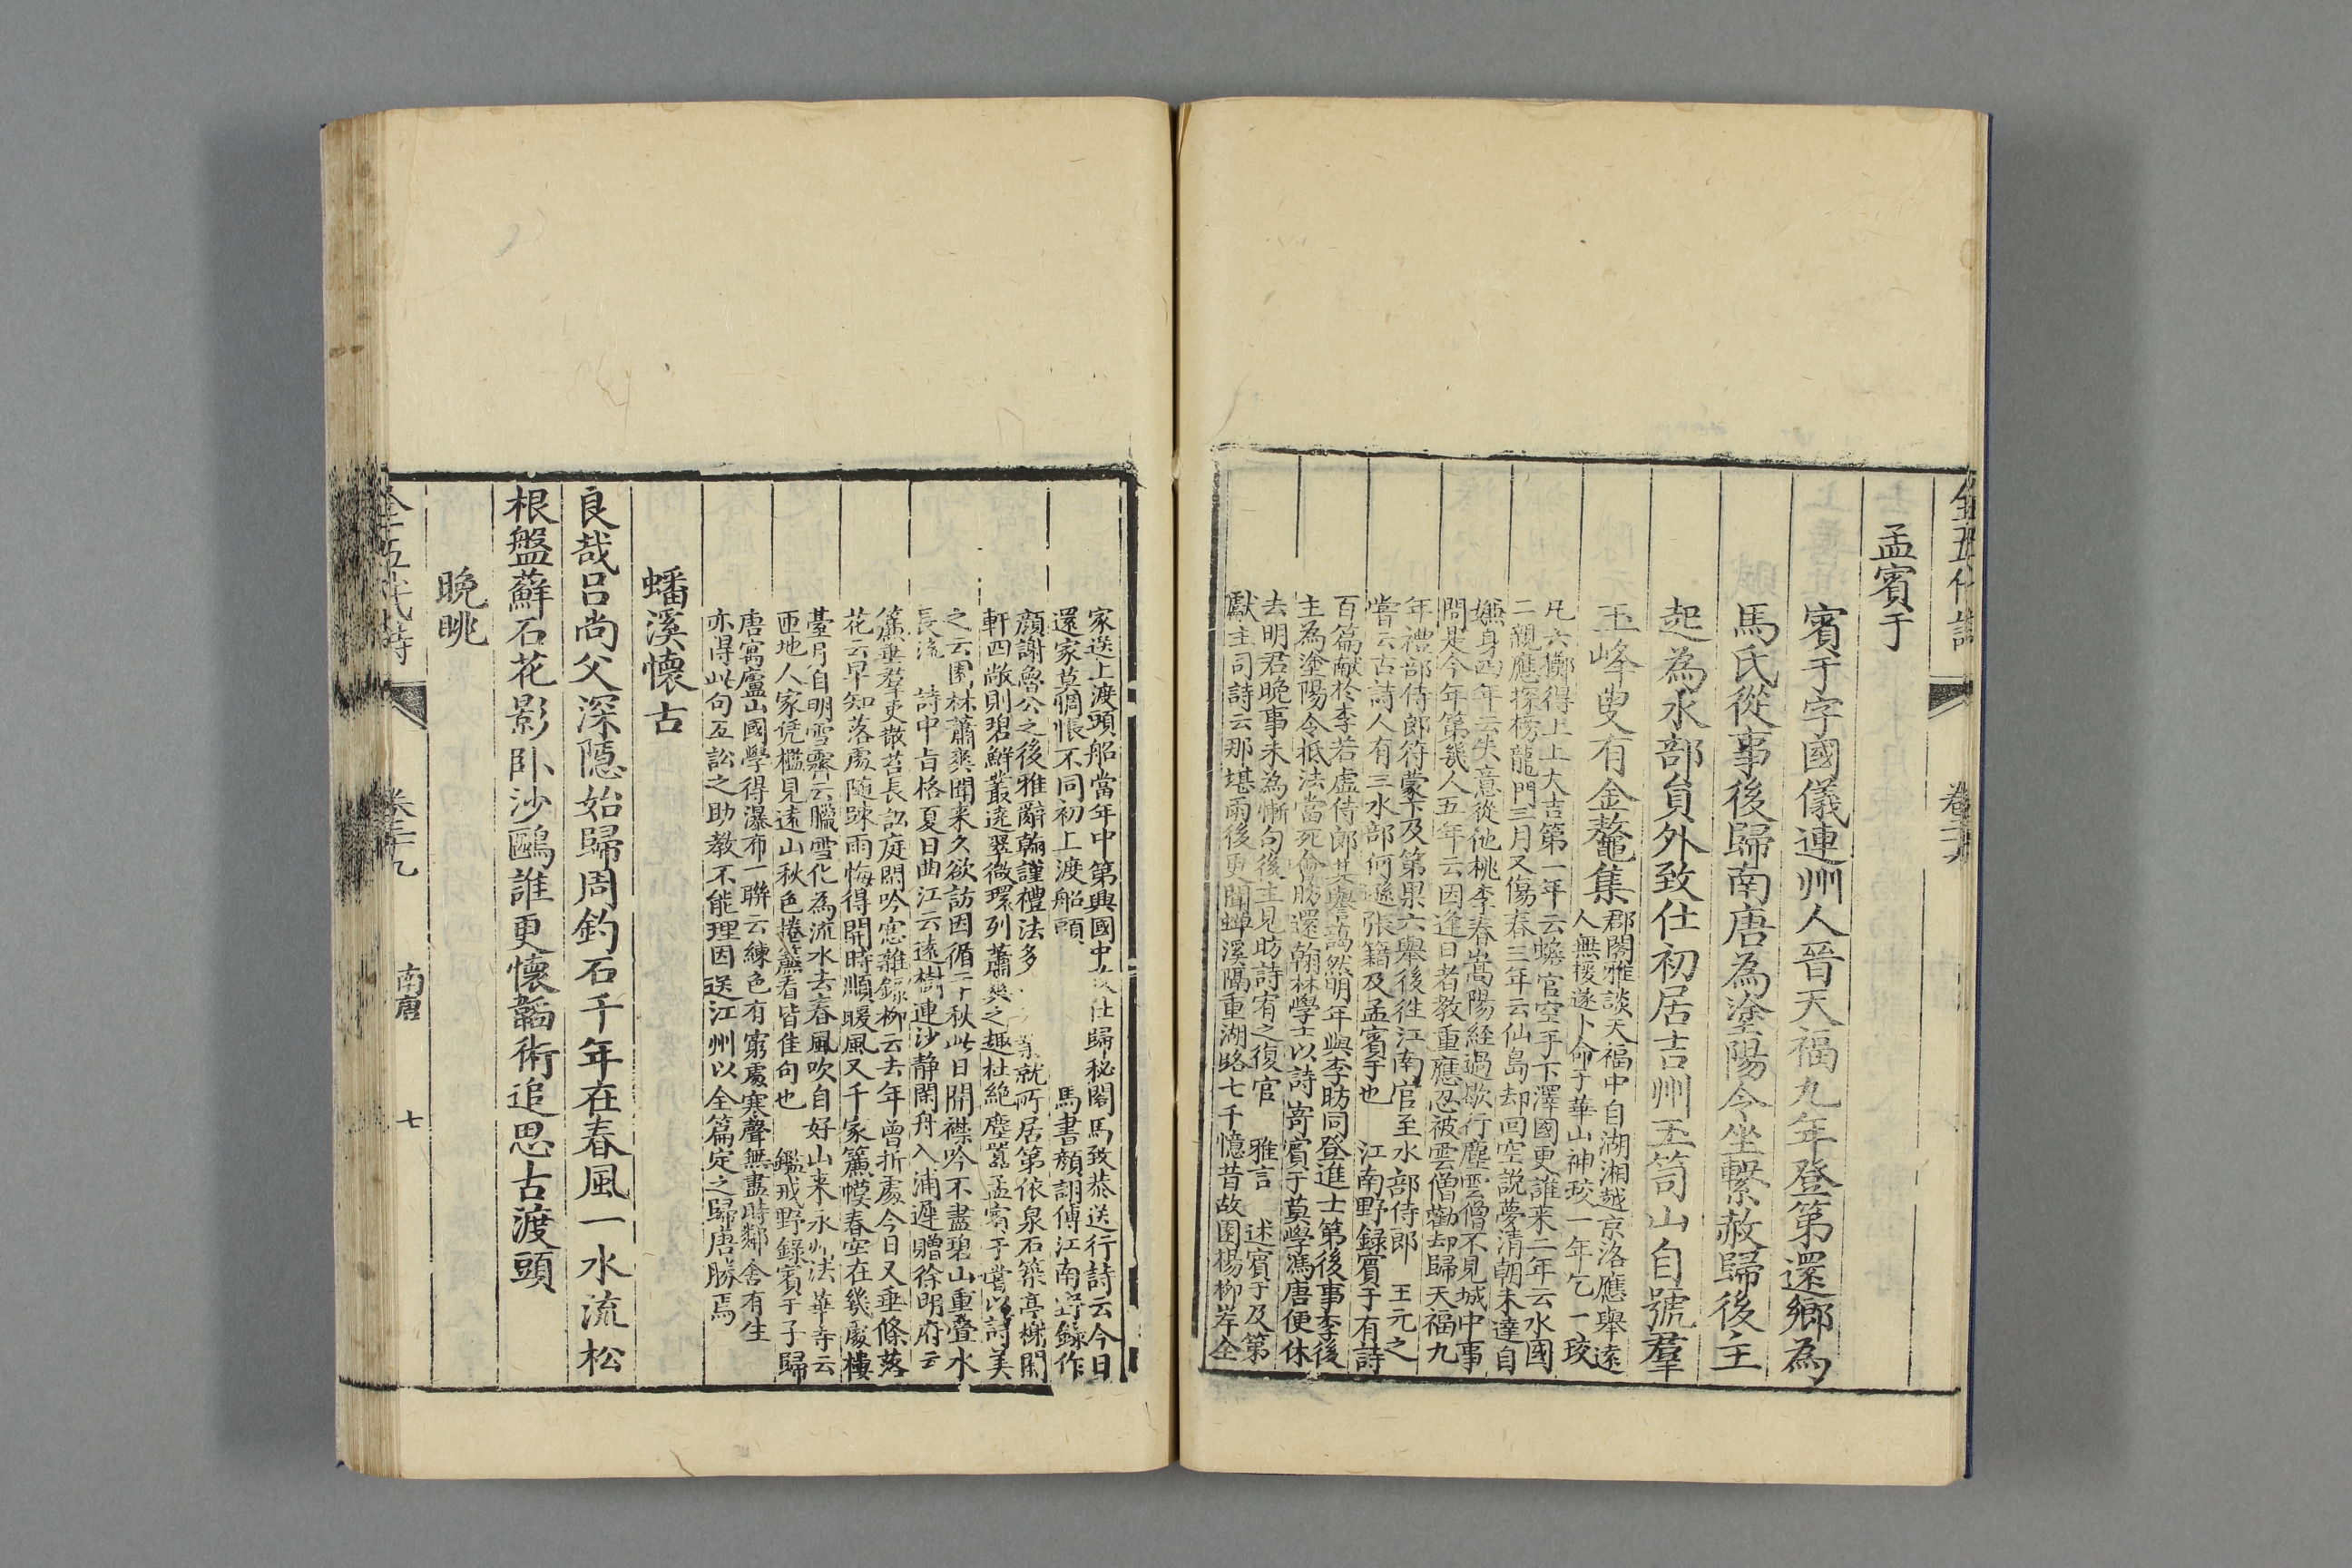 全五代詩
卷三十九
孟賓于
賓于字國儀連州人晉天福九年登第還鄉為
馬氏從事後歸南唐為塗陽令坐繫赦歸後主
起為水部員外致仕初居吉州玉笥山自號羣
玉峰叟有金鼇集
郡閣雅談天福中自湖湘越京洛應舉遠
人無援遂卜命于華山神珓一年乞一珓
凡六擲得上上大吉第一年云蟾官空手下澤國更誰来二年云水國
二親應探榜龍門三月又傷春三年云仙島却回空説夢清朝未達自
嫌身四年云失意從他桃李春嵩陽経過歇行塵雲僧不見城中事
問是今年第幾人五年云因逢日者教重應忍被雲僧勸却歸天福九
年禮部侍郎符蒙下及第果六舉後徃江南官至水部侍郎　王元之
甞云古詩人有三水部何遜張籍及孟賓于也　江南野録賓于有詩
百篇献於李若虛侍郎其譽藹然明年與李昉同登進士第後事李後
主為塗陽令抵法當死偸昉還翰林學士以詩寄賓于莫學馮唐便休
去明君晚事未為慚句後主見昉詩宥之復官　雅言　述賓于及第
獻主司詩云那堪雨後更聞蟬溪隔重湖路七千憶昔故園楊柳岸全
家送上渡頭船當年中第興國中致仕歸秘閣馬致恭送行詩云今日
還家莫惆悵不同初上渡船頭　馬書顏詡傅江南野錄作
顏謝魯公之後雅辭翰謹禮法多　業就所居第依泉石築亭榭闢
軒四敞則碧鮮叢遶翠微環列蕭爽之趣杜絶塵嚻孟賓于嘗以詩美
之云園林蕭爽聞来久欲訪因循二十秋此日開襟吟不盡碧山重疊水
長流　詩中旨格夏日曲江云遠樹連沙静閑舟入浦遲贈徐明府云
簾垂羣吏散苔長訟庭閑吟窓雜錄柳云去年曾折處今日又垂條落
花云早知落處随踈雨悔得開時順暖風又千家簾幙春空在幾處樓
臺月自明雪霽云臘雪化為流水去春風吹自好山来永州法華寺云
匝地人家凭檻見遠山秋色捲簾看皆佳句也　鑑戒野錄賓于子歸
唐寓廬山國學得瀑布一聯云練色有窮處寒聲無盡時鄰舍有生
亦得此句互訟之助教不能理因送江州以全篇定之歸唐勝焉
蟠溪懷古
良哉吕尚父深隱始歸周釣石千年在春風一水流松
根盤蘚石花影卧沙鷗誰更懷韜術追思古渡頭
晚眺
全五代詩
卷三十九
南唐
七